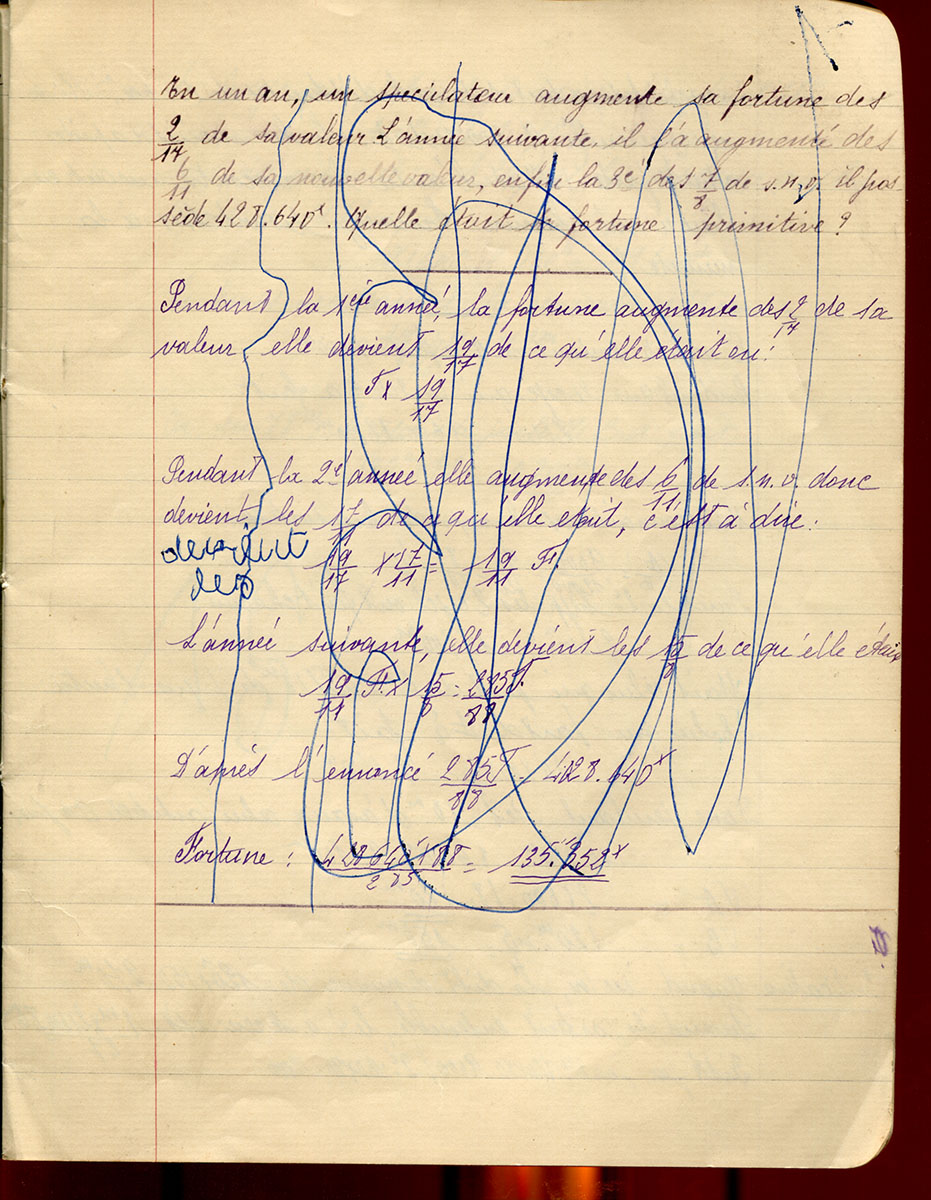 En un an, un spéculateur augmente sa fortune des
2/17 de sa valeur L'année suivante, il l'a augmenté des
6/11 de sa nouvelle valeur, enfin la 3e des 7/8 de s.n.v. il pos-
sède 428.640x. Quelle était sa fortune primitive ?
Pendant la 1ère année, la fortune augmente des 2/17 de sa
valeur, elle devient 19/17 de ce qu'elle était ou :
F x 19/17
Pendant la 2e année elle augmente des 6/11 de s.n.v. donc
devient les 17/11 de ce qu'elle était, c'est à dire :
devient
les
19/17 x 17/11 = 19/11 F.
L'année suivante, elle devient les 15/8 de ce qu'elle était
19/11 F x 15/8 = 285F/88
D'après l'énoncé 285F/88 = 428.640x
Fortune : 428640 x 88/285 = 135.258x